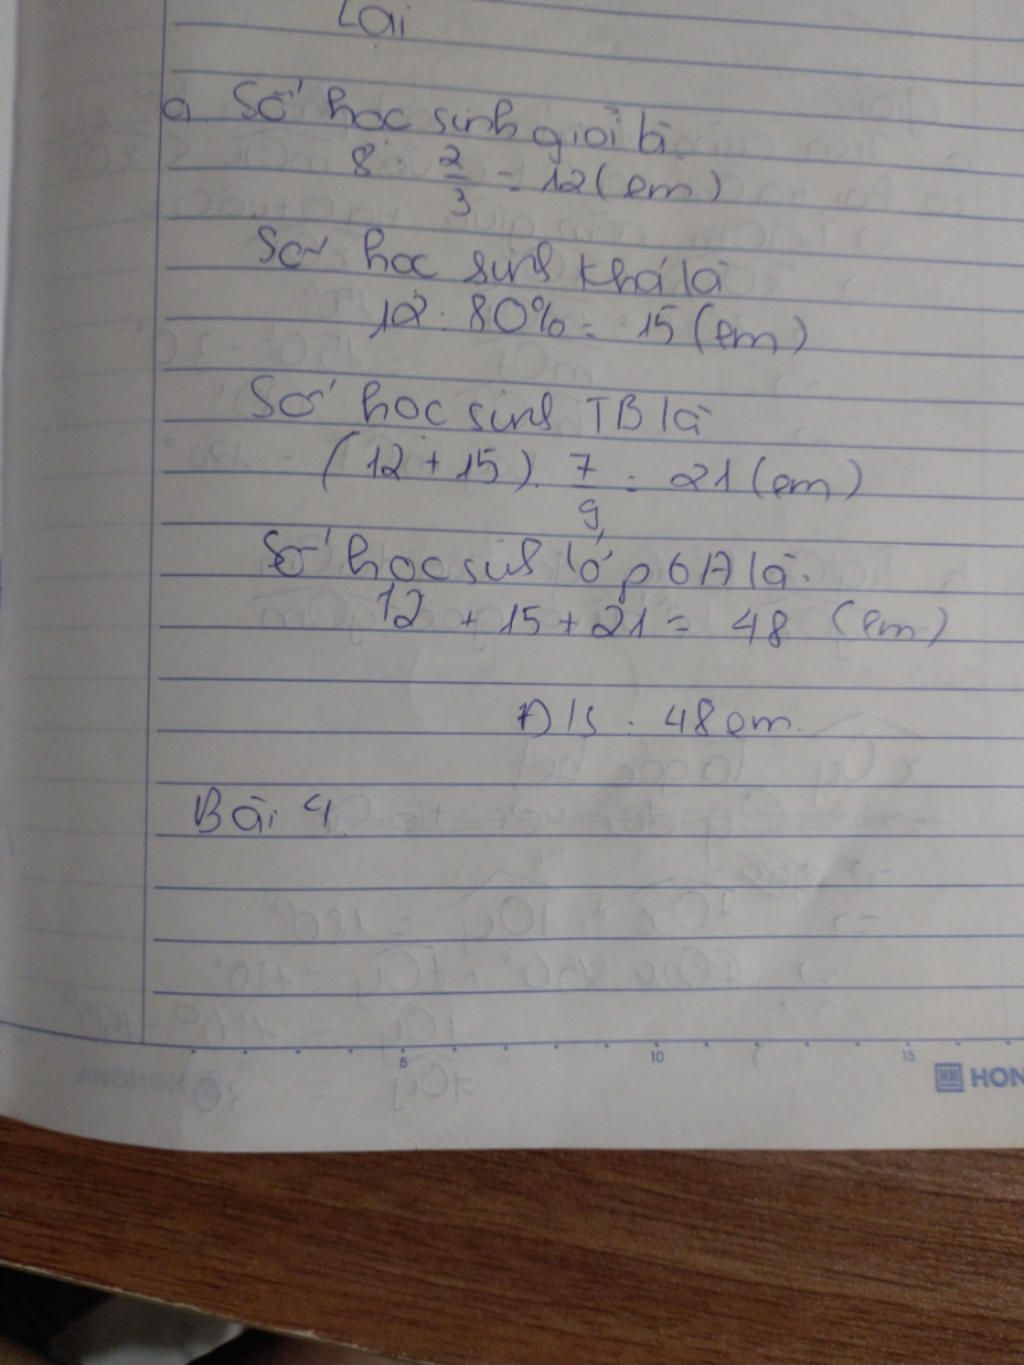 Lại
a. Số học sinh giỏi là
8 : 2/3 = 12 (em)
Số học sinh khá là
12 : 80% = 15 (em)
Số học sinh TB là
(12 + 15) . 7/9 = 21 (em)
Số học sinh lớp 6A là.
12 + 15 + 21 = 48 (em)
Đ/S : 48 em.
Bài 4
5 10 15
HON